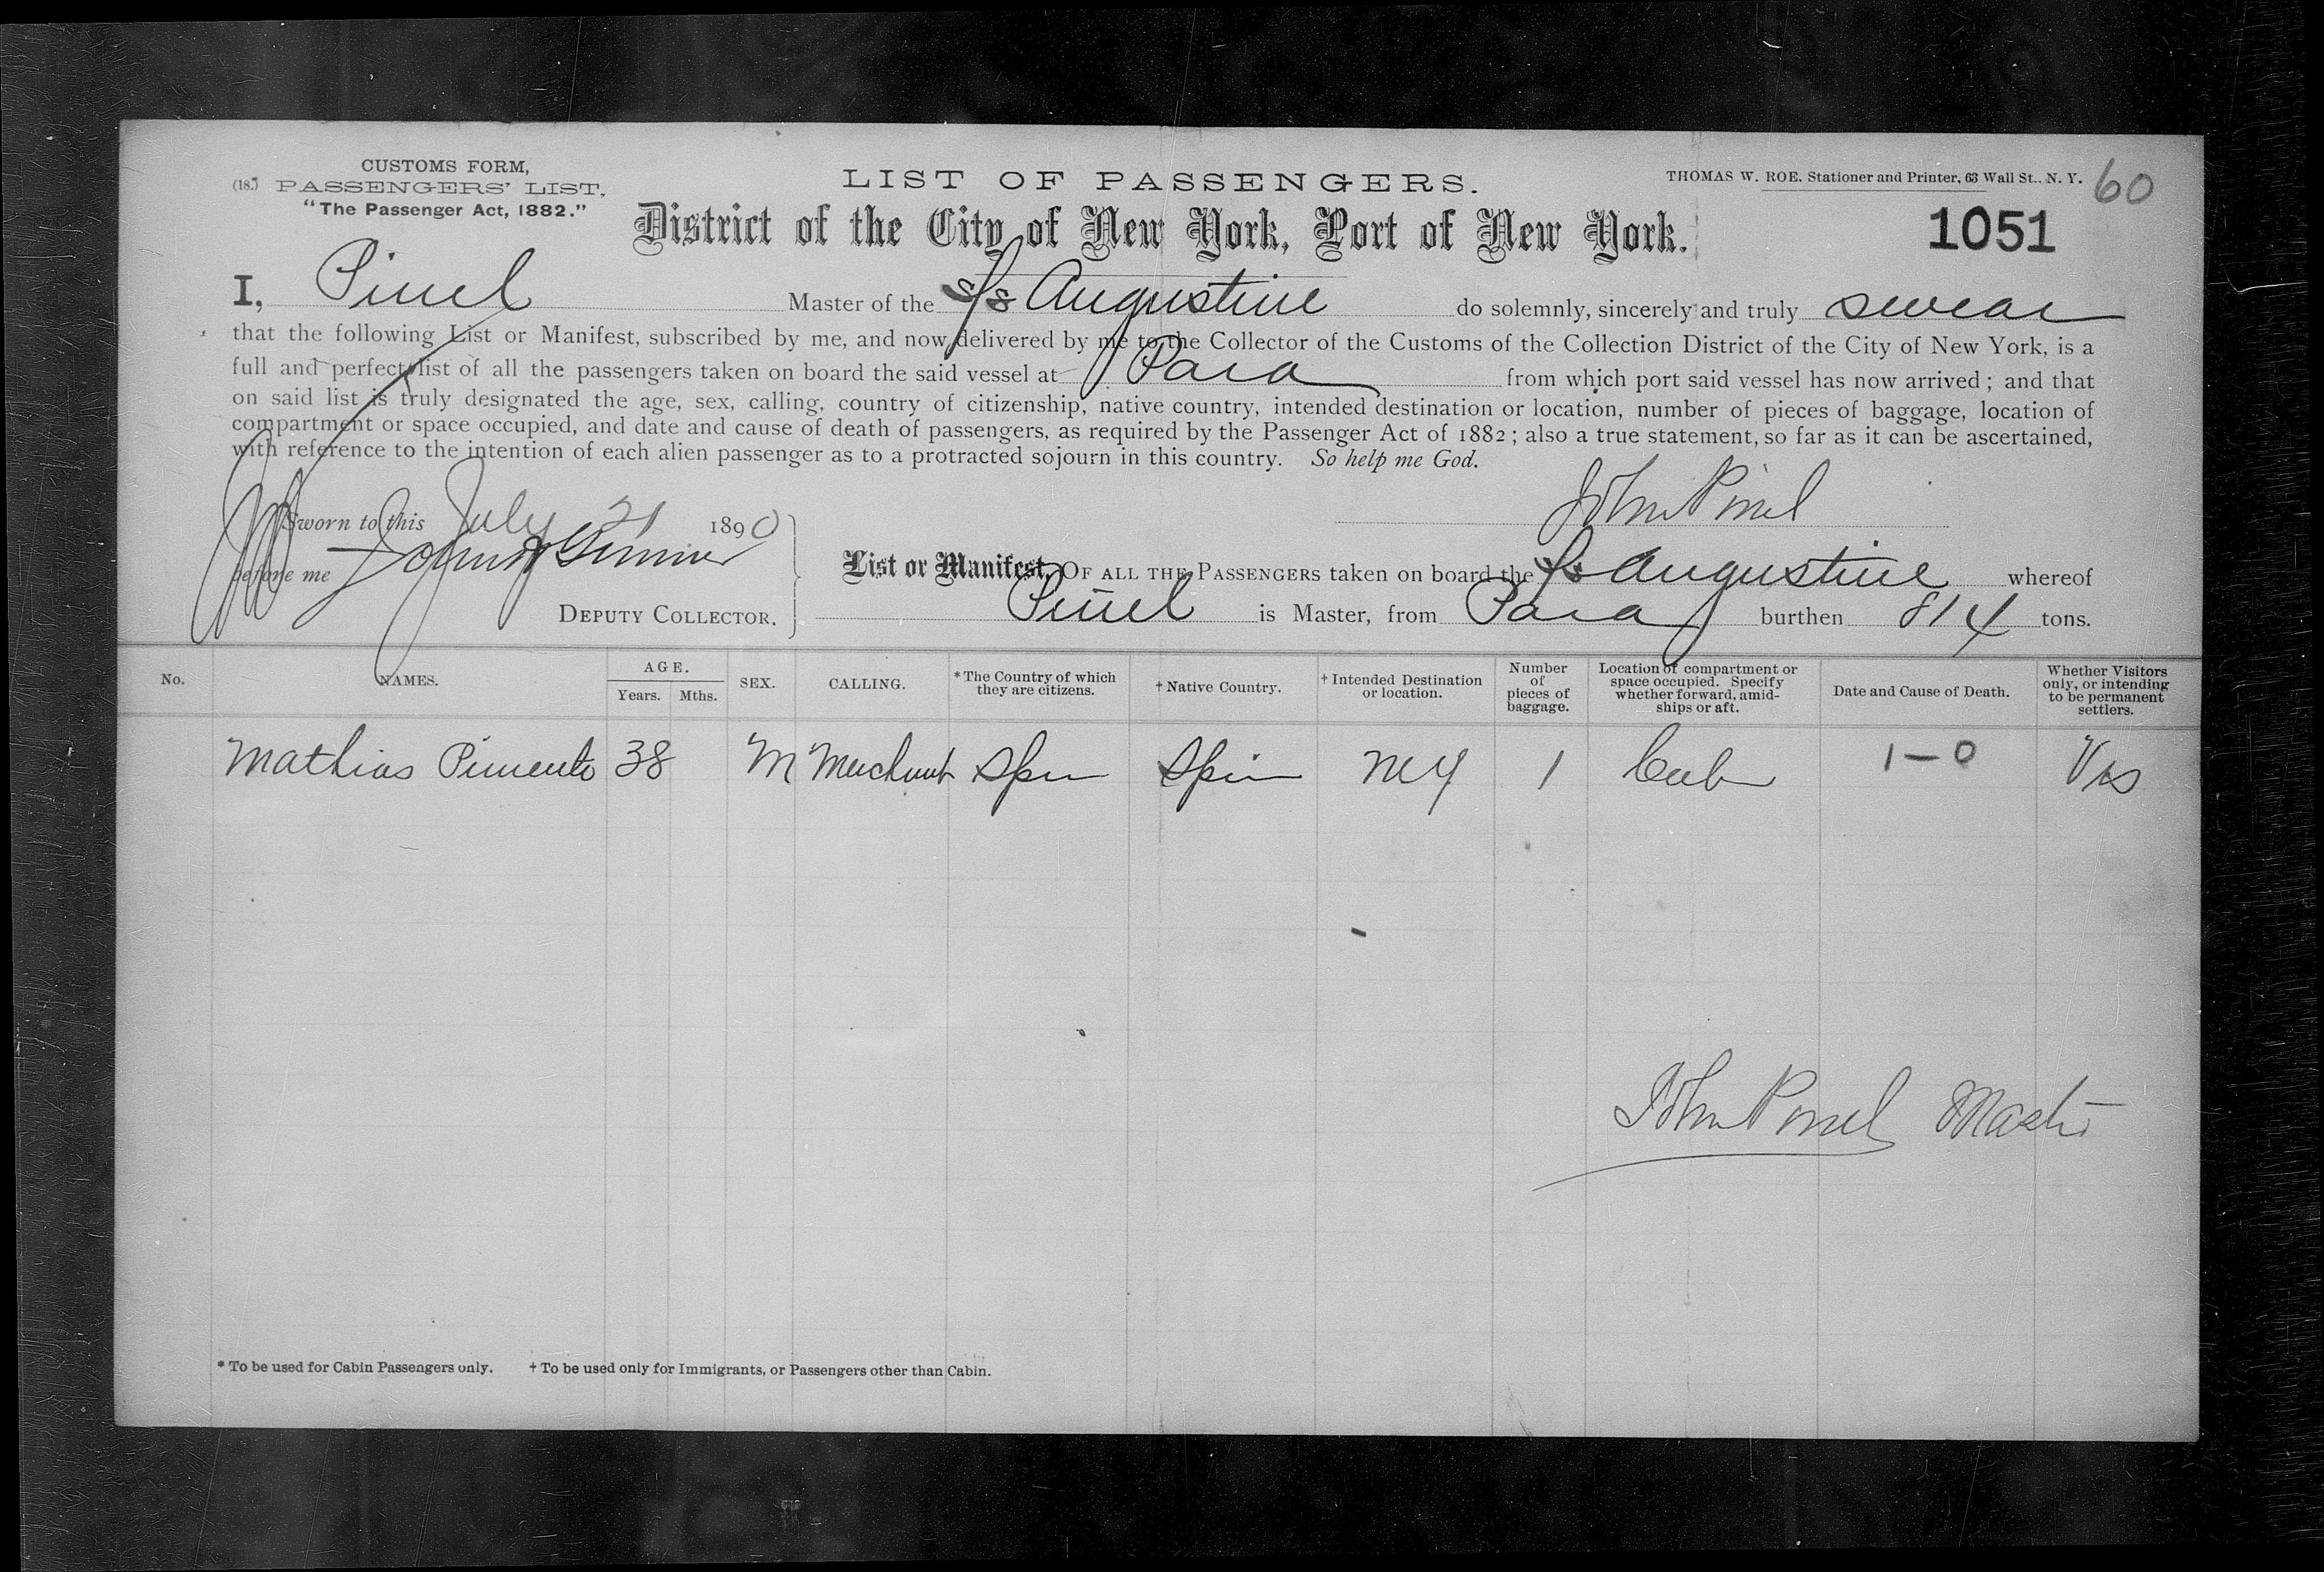 CUSTOMS FORM,
(18.) PASSENGERS' LIST.
"The Passenger Act, 1882."
LIST OF PASSENGERS.
THOMAS W. ROE. Stationer and Printer, 63 Wall St., N. Y.
60
District of the City of New York, Port of New York.
1051
I, Pinel Master of the S/s Augustine do solemnly, sincerely and truly swear
that the following List or Manifest, subscribed by me, and now delivered by me to the Collector of the Customs of the Collection District of the City of New York, is a
full and perfect list of all the passengers taken on board the said vessel at Para from which port said vessel has now arrived; and that
on said list is truly designated the age, sex, calling, country of citizenship, native country, intended destination or location, number of pieces of baggage, location of
compartment or space occupied, and date and cause of death of passengers, as required by the Passenger Act of 1882; also a true statement, so far as it can be ascertained,
with reference to the intention of each alien passenger as to a protracted sojourn in this country. So help me God.
Sworn to this July 21 1890
John Pinel
before me
List or Manifest, OF ALL THE PASSENGERS taken on board the S/s Augustine whereof
DEPUTY COLLECTOR.
Pinel is Master, from Para burthen 814 tons.
No. NAMES. AGE. Years. Mths. SEX. CALLING. *The Country of which they are citizens. †Native Country. †Intended Destination or location. Number of pieces of baggage. Location of compartment or space occupied. Specify whether forward, amidships or aft. Date and Cause of Death. Whether Visitors only, or intending to be permanent settlers.
Mathias Pimento 38 M Merchant Spain Spain N Y 1 Cab 1-0 Vis
John Pinel Master
* To be used for Cabin Passengers only. † To be used only for Immigrants, or Passengers other than Cabin.